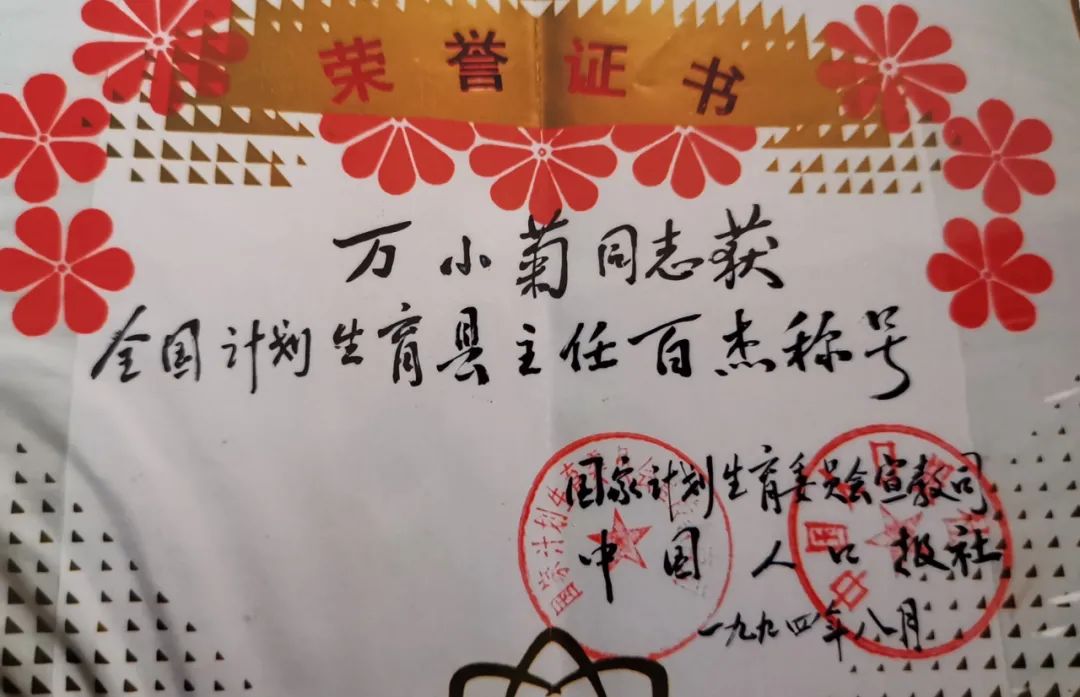 荣誉证书
万小菊同志获
全国计划生育县主任百杰称号
国家计划生育委员会宣教司
中国人口报社
一九九四年八月